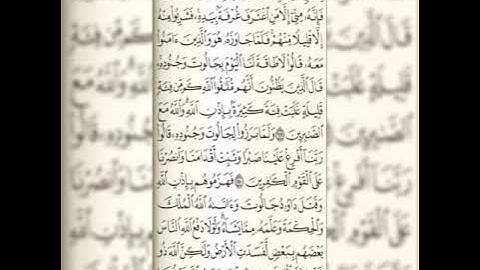 فَإِنَّهُۥ مِنِّىٓ إِلَّا مَنِ ٱغْتَرَفَ غُرْفَةًۢ بِيَدِهِۦ ۚ فَشَرِبُوا۟ مِنْهُ
إِلَّا قَلِيلًا مِّنْهُمْ ۚ فَلَمَّا جَاوَزَهُۥ هُوَ وَٱلَّذِينَ ءَامَنُوا۟
مَعَهُۥ قَالُوا۟ لَا طَاقَةَ لَنَا ٱلْيَوْمَ بِجَالُوتَ وَجُنُودِهِۦ ۚ
قَالَ ٱلَّذِينَ يَظُنُّونَ أَنَّهُم مُّلَـٰقُوا۟ ٱللَّهِ كَم مِّن فِئَةٍ
قَلِيلَةٍ غَلَبَتْ فِئَةً كَثِيرَةًۢ بِإِذْنِ ٱللَّهِ ۗ وَٱللَّهُ مَعَ
ٱلصَّـٰبِرِينَ وَلَمَّا بَرَزُوا۟ لِجَالُوتَ وَجُنُودِهِۦ قَالُوا۟
رَبَّنَآ أَفْرِغْ عَلَيْنَا صَبْرًا وَثَبِّتْ أَقْدَامَنَا وَٱنصُرْنَا
عَلَى ٱلْقَوْمِ ٱلْكَـٰفِرِينَ فَهَزَمُوهُم بِإِذْنِ ٱللَّهِ
وَقَتَلَ دَاوُۥدُ جَالُوتَ وَءَاتَىٰهُ ٱللَّهُ ٱلْمُلْكَ
وَٱلْحِكْمَةَ وَعَلَّمَهُۥ مِمَّا يَشَآءُ ۗ وَلَوْلَا دَفْعُ ٱللَّهِ ٱلنَّاسَ
بَعْضَهُم بِبَعْضٍ لَّفَسَدَتِ ٱلْأَرْضُ وَلَـٰكِنَّ ٱللَّهَ ذُو